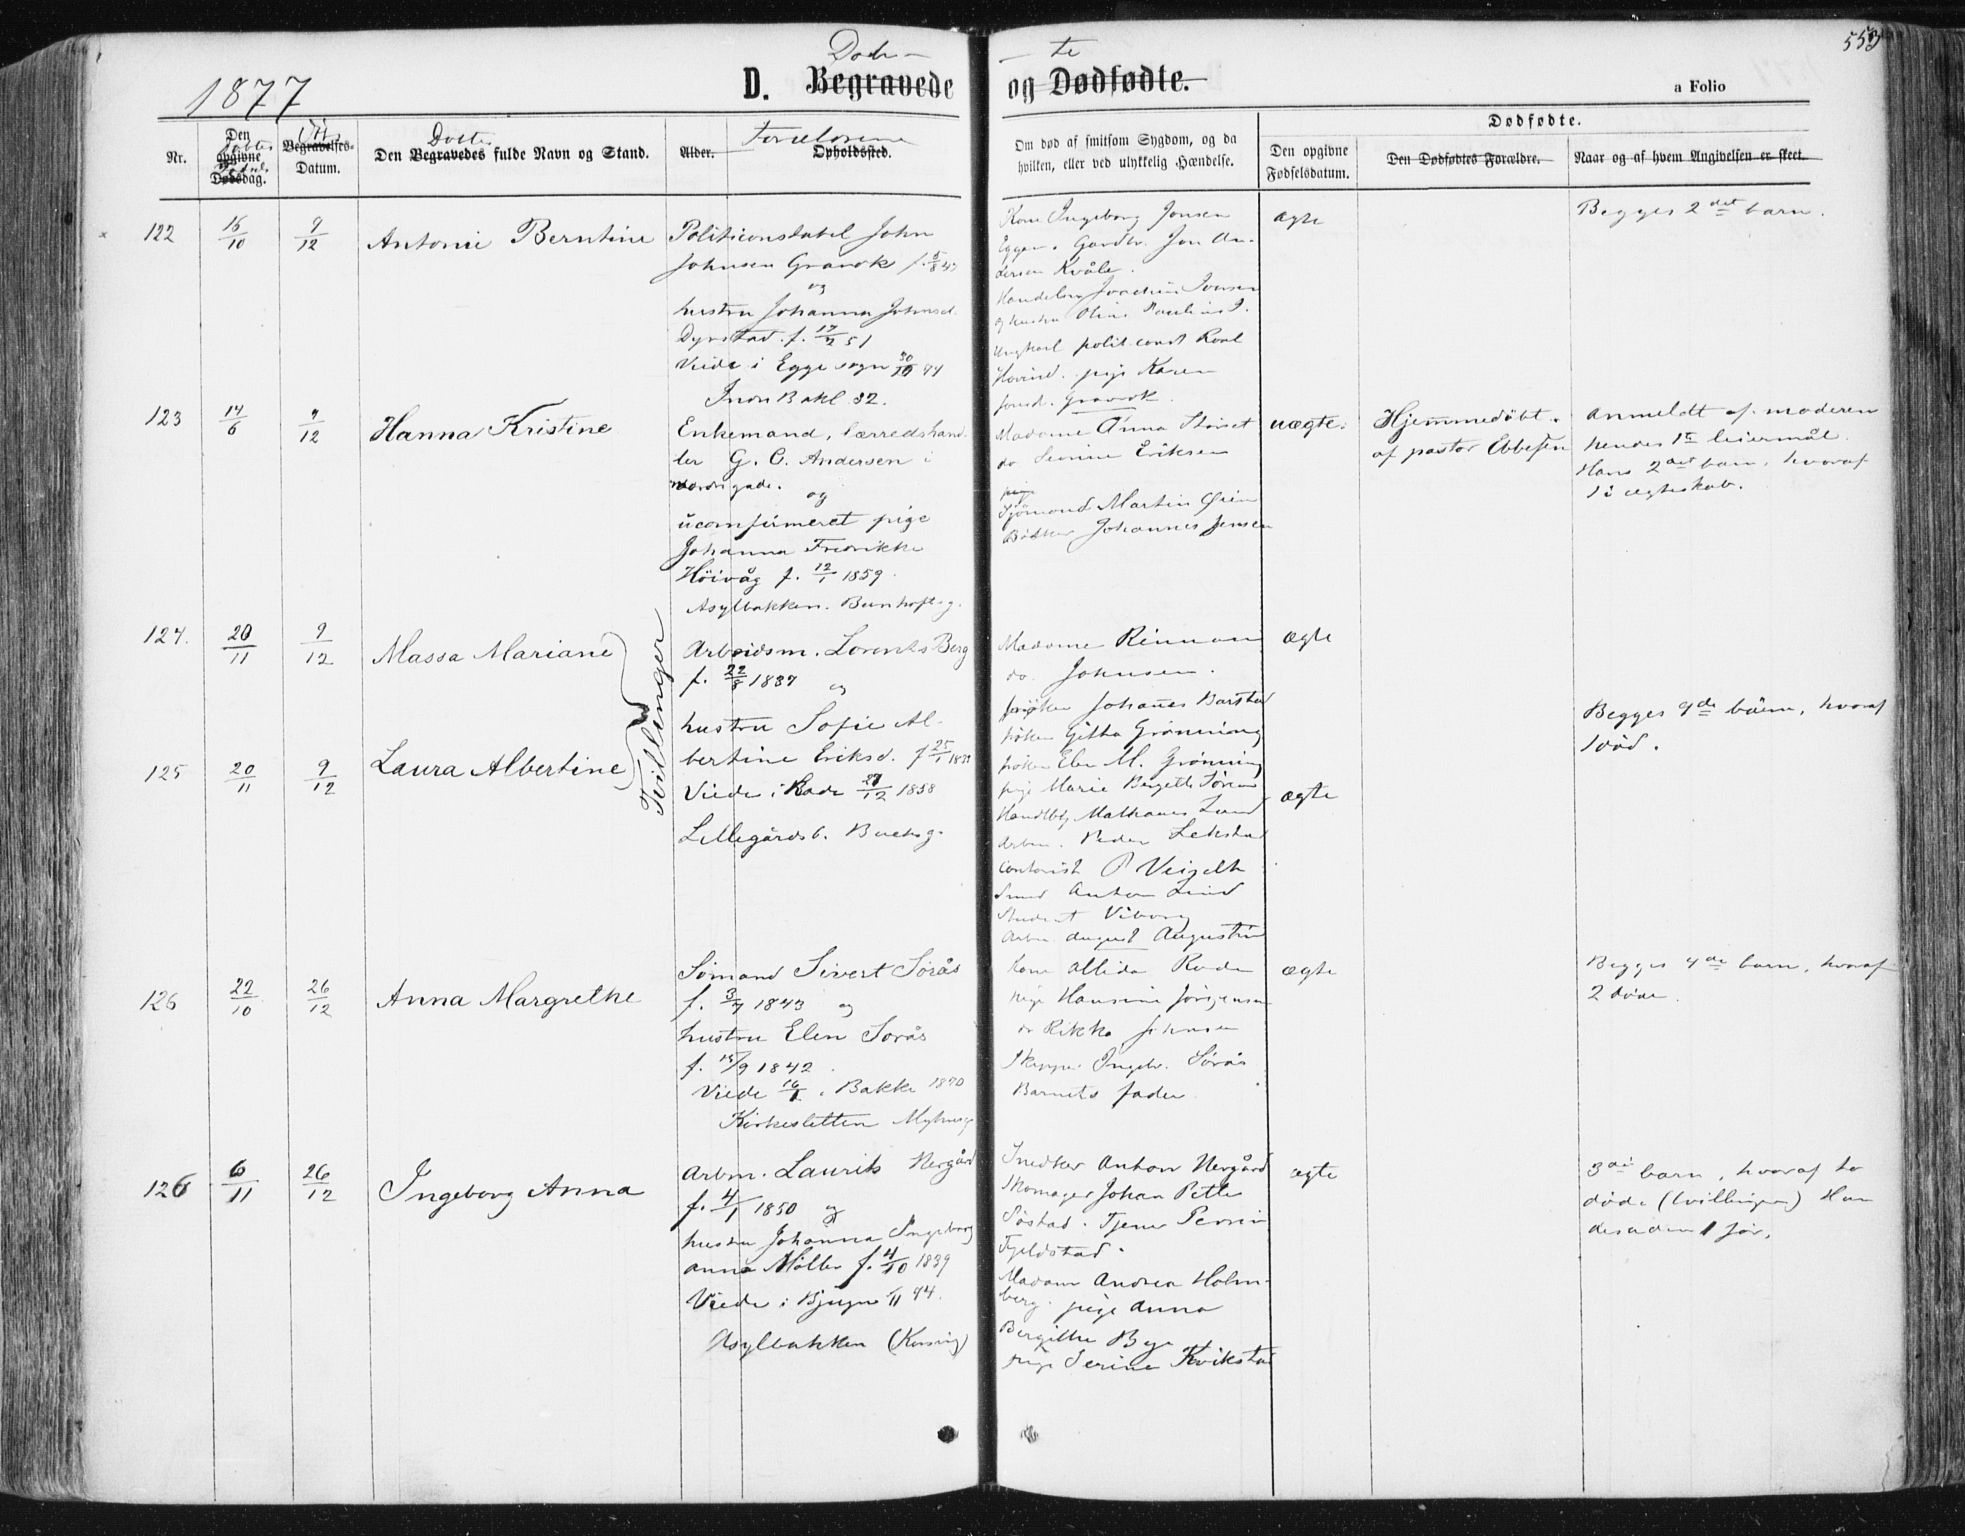 1877
Døb-
te
553
D. Begravede og Dødfødte.
a Folio
Nr.
Den opgivne Dødsdag.
Begravelses-Datum.
Døbtes
Den Begravedes fulde Navn og Stand.
Alder.
Forældrene
Opholdssted.
Om død af smitsom Sygdom, og da
hvilken, eller ved ulykkelig Hændelse.
Dødfødte.
Den opgivne
Fødselsdatum.
Den Dødfødtes Forældre.
Naar og af hvem Angivelsen er skeet.
122
16/10
9/12
Antonie Berntine
Politiconstabel John
Johnsen Gravok f. 5/8 47
og
hustru Johanna Johnsd.
Dyrstad. f. 17/2 51
Viede i Egge sogn 30/10 74
Indr Bakl 32.
Kone Ingeborg Jonsen
Egge. Gardbr. Jon An-
dersen Kvåle.
Handelsm Joachim Jonsen
og hustru Oline Pauline J.
Ungkarl polit.const Roal
Hovind. pige Karen
Jonsd. Gravok.
ægte
Begges 2det barn.
123
14/6
9/12
Hanna Kristine
Enkemand, lærredshand
ler G. C. Andersen i
Nordregade.
og
uconfirmeret pige
Johanna Fredrikke
Höivåg f. 12/1 1859.
Asylbakken. Bunhoftsg.
Madame Anna Störset
do Sevrine Eriksen
pige
Sjömand Martin Öien
Bödker Johannes Jensen
uægte.
Hjemmedöbt.
af pastor Ebbesen
Anmeldt af moderen
hendes 1te leiermål.
Hans 2det barn, hvoraf
1 i ægteskab.
124.
20/11
9/12
Massa Mariane
Tvillinger
Arbeidsm. Lorents Berg
f. 22/8 1837
og
hustru Sofie Al-
bertine Eriksd. f 25/1 183
Viede i Bade 27/12 1858
Lillegårdsb. Buchsg.
Madame Rinnan
do. Johnsen.
fröken Johanes Barstad
fröken Githa Grönning
fröken Elen M. Grönning
pige Marie Bergitte Sören
Handlbtj Mathæus Lund
Arbm. Peder Lekstad
Contorist P Veigelt
Smed Anton Lund
Student Viborg
Arbm. August Augustin
ægte
Begges 9de börn, hvoraf
1 död.
125
20/11
9/12
Laura Albertine
ægte
126
22/10
26/12
Anna Margrethe
Sömand Sivert Sörås
f. 3/7 1843 og
hustru Elen Sorås
f. 15/9 1842.
Viede 16/1 i Bakke 1870
Kirkesletten
Kone Allida Rode
Pige Hansine Jörgensen
do Rikka Johnsen
Skipper Ingebr. Sörås
Barnets fader.
ægte
Begges 4de barn, hvoraf
2 döde.
126
6/11
26/12
Ingeborg Anna
Arbm. Laurits Nergård
f. 4/1 1850 og
hustru Johanna Ingeborg
Anna Möller f. 4/10 1839
Viede i Bjugn 1/11 74.
Asylbakken
Snedker Anton Nergård
Skomager Johan Petter
Söstad. Tjener Pernin
Fjeldstad.
Madam Andrea Holm-
berg. pige Anna
Bergitte Bye
pige Serine Kvikstad
ægte
3die barn, hvoraf to
döde (tvillinger) Han
desuden 1 för.